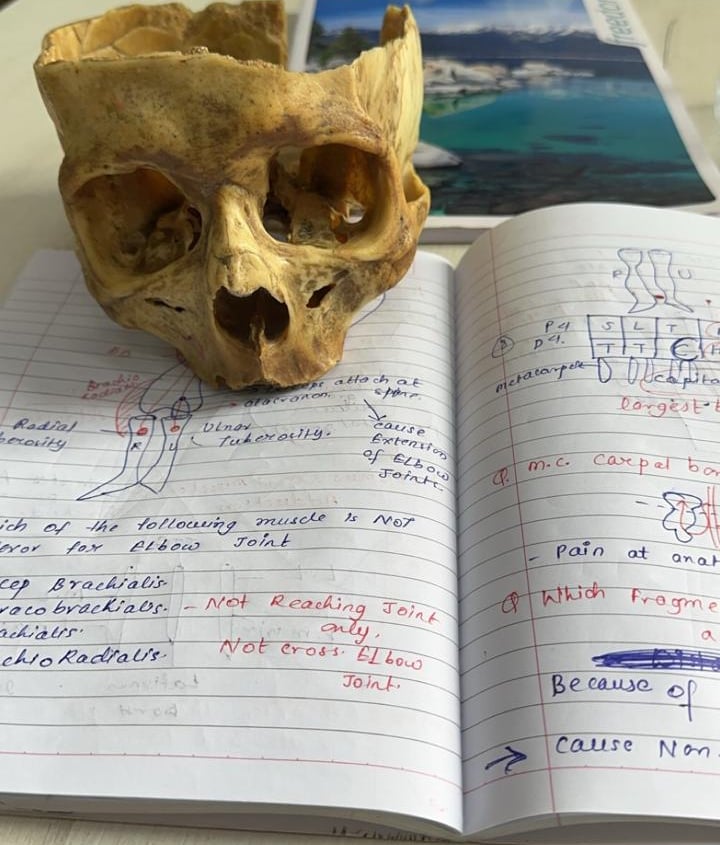 freedom
Brachio
Radialis
attach at
olecranon. spine.
Radial
berosity
R U
Ulnar
Tuberosity.
cause
Extension
of Elbow
Joints.
ich of the following muscle is NOT
for Elbow Joint
cep Brachialis
raco brachialis. - Not Reaching Joint
only.
achialis.
chio Radialis. Not cross Elbow
Joint.
R U
P4 S L T
D4. T T C H
metacarpel capita
largest
Q. m.c. Carpal bo
- Pain at anat
Q Which Fragme
a
Because of
→ cause Non.